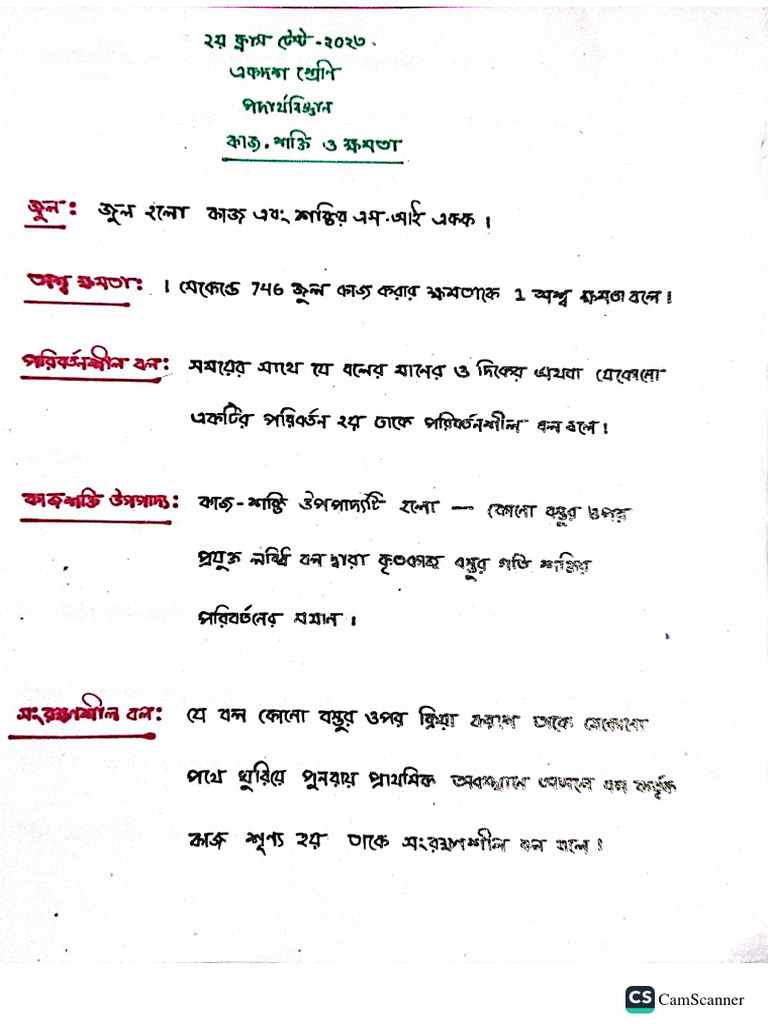 ২য় ক্লাস টেস্ট-২০২৩.
একাদশ শ্রেণি
পদার্থবিজ্ঞান
কাজ, শক্তি ও ক্ষমতা
জুল: জুল হলো কাজ এবং শক্তির এস.আই একক।
অশ্ব ক্ষমতা: ১ সেকেন্ডে 746 জুল কাজ করার ক্ষমতাকে 1 অশ্ব ক্ষমতা বলে।
পরিবর্তনশীল বল: সময়ের সাথে যে বলের মানের ও দিকের অথবা যেকোনো
একটির পরিবর্তন হয় তাকে পরিবর্তনশীল বল বলে।
কাজশক্তি উপপাদ্য: কাজ-শক্তি উপপাদ্যটি হলো — কোনো বস্তুর ওপর
প্রযুক্ত লব্ধি বল দ্বারা কৃতকাজ বস্তুর গতি শক্তির
পরিবর্তনের সমান।
সংরক্ষণশীল বল: যে বল কোনো বস্তুর ওপর ক্রিয়া করলে তাকে যেকোনো
পথে ঘুরিয়ে পুনরায় প্রাথমিক অবস্থানে আনলে বল কর্তৃক
কাজ শূণ্য হয় তাকে সংরক্ষণশীল বল বলে।
CS CamScanner